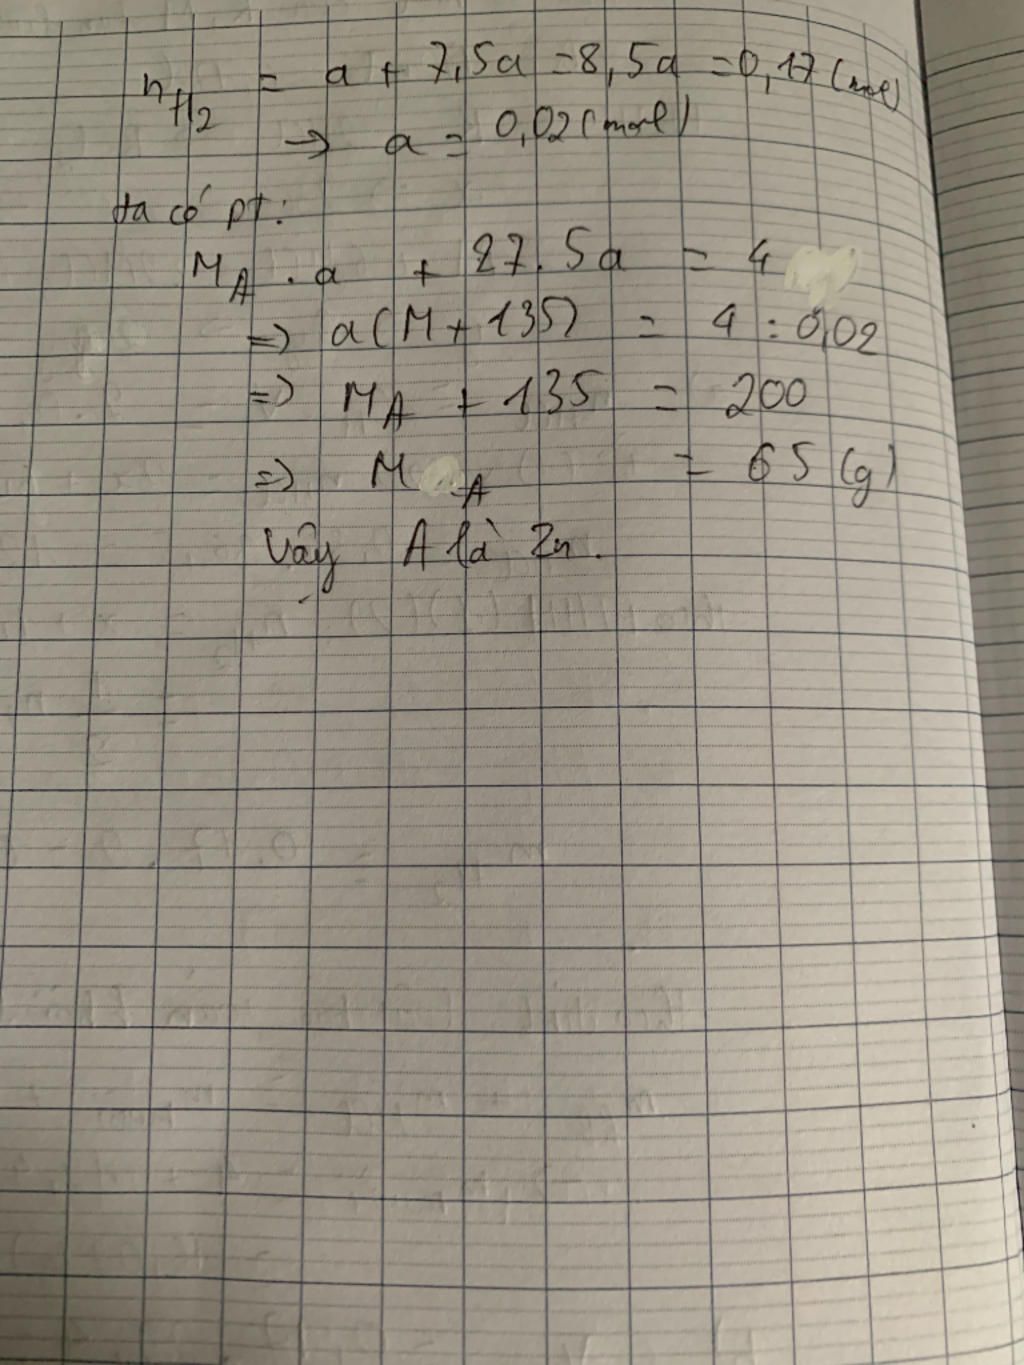 n_H2 = a + 7,5a = 8,5a = 0,17 (mol)
→ a = 0,02 (mol)
ta có pt:
M_A . a + 27.5a = 4
=> a(M + 135) = 4 : 0,02
=> M_A + 135 = 200
=> M_A = 65 (g)
Vậy A là Zn.